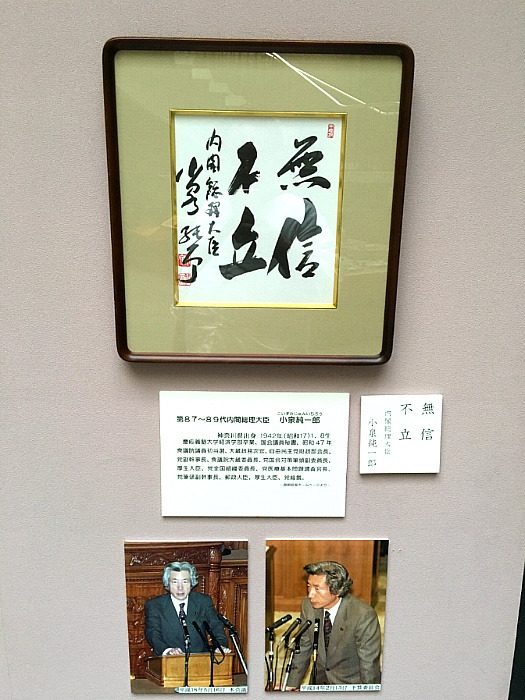 無信
不立
内閣総理大臣
小泉純一郎
こいずみじゅんいちろう
第87～89代内閣総理大臣 小泉純一郎
神奈川県出身 1942年(昭和17)1.8生
慶応義塾大学経済学部卒業、国会議員秘書、昭和47年
衆議院議員初当選、大蔵政務次官、自由民主党財政部会長、
党副幹事長、衆議院大蔵委員長、党国会対策筆頭副委員長、
厚生大臣、党全国組織委員長、党医療基本問題調査会長、
党筆頭副幹事長、郵政大臣、厚生大臣、党総裁。
無信
不立
内閣総理大臣
小泉純一郎
平成18年5月16日 本会議
平成14年2月15日 予算委員会